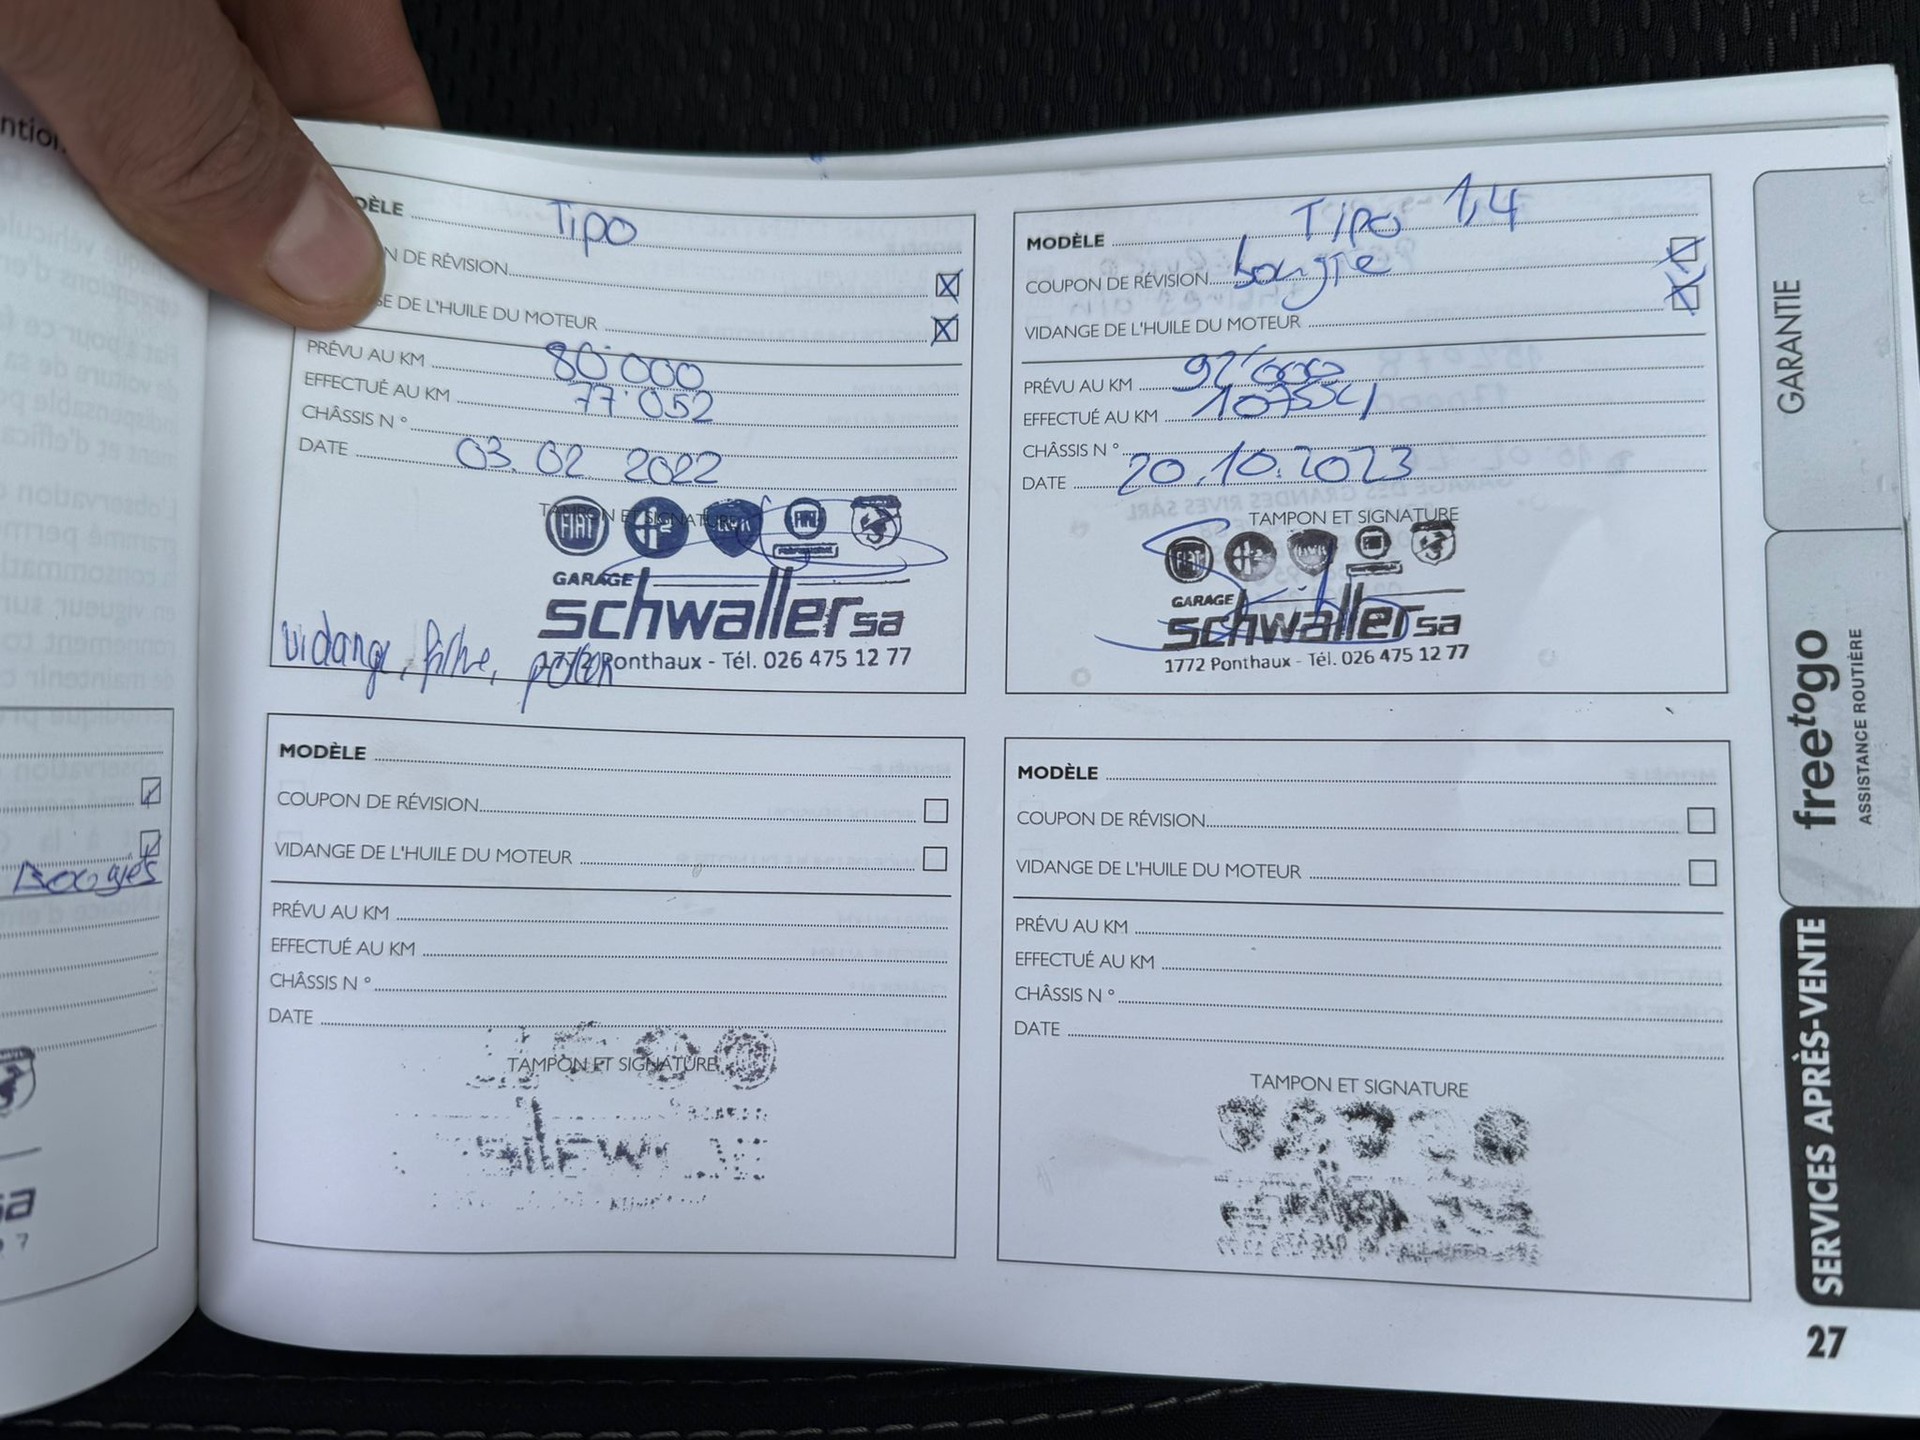 ntion
DÈLE Tipo
N DE RÉVISION
SE DE L'HUILE DU MOTEUR
PRÉVU AU KM 80'000
EFFECTUÉ AU KM 77'052
CHÂSSIS N °
DATE 03.02 2022
TAMPON ET SIGNATURE
FIAT
GARAGE
schwaller sa
1772 Ponthaux - Tél. 026 475 12 77
vidange, filtre, pollen
MODÈLE Tipo 1,4
COUPON DE RÉVISION bougie
VIDANGE DE L'HUILE DU MOTEUR
PRÉVU AU KM
EFFECTUÉ AU KM
CHÂSSIS N °
DATE 20.10.2023
TAMPON ET SIGNATURE
GARAGE
schwaller sa
1772 Ponthaux - Tél. 026 475 12 77
Bougies
sa
7
MODÈLE
COUPON DE RÉVISION
VIDANGE DE L'HUILE DU MOTEUR
PRÉVU AU KM
EFFECTUÉ AU KM
CHÂSSIS N °
DATE
TAMPON ET SIGNATURE
MODÈLE
COUPON DE RÉVISION
VIDANGE DE L'HUILE DU MOTEUR
PRÉVU AU KM
EFFECTUÉ AU KM
CHÂSSIS N °
DATE
TAMPON ET SIGNATURE
GARANTIE
freetogo
ASSISTANCE ROUTIÈRE
SERVICES APRÈS-VENTE
27